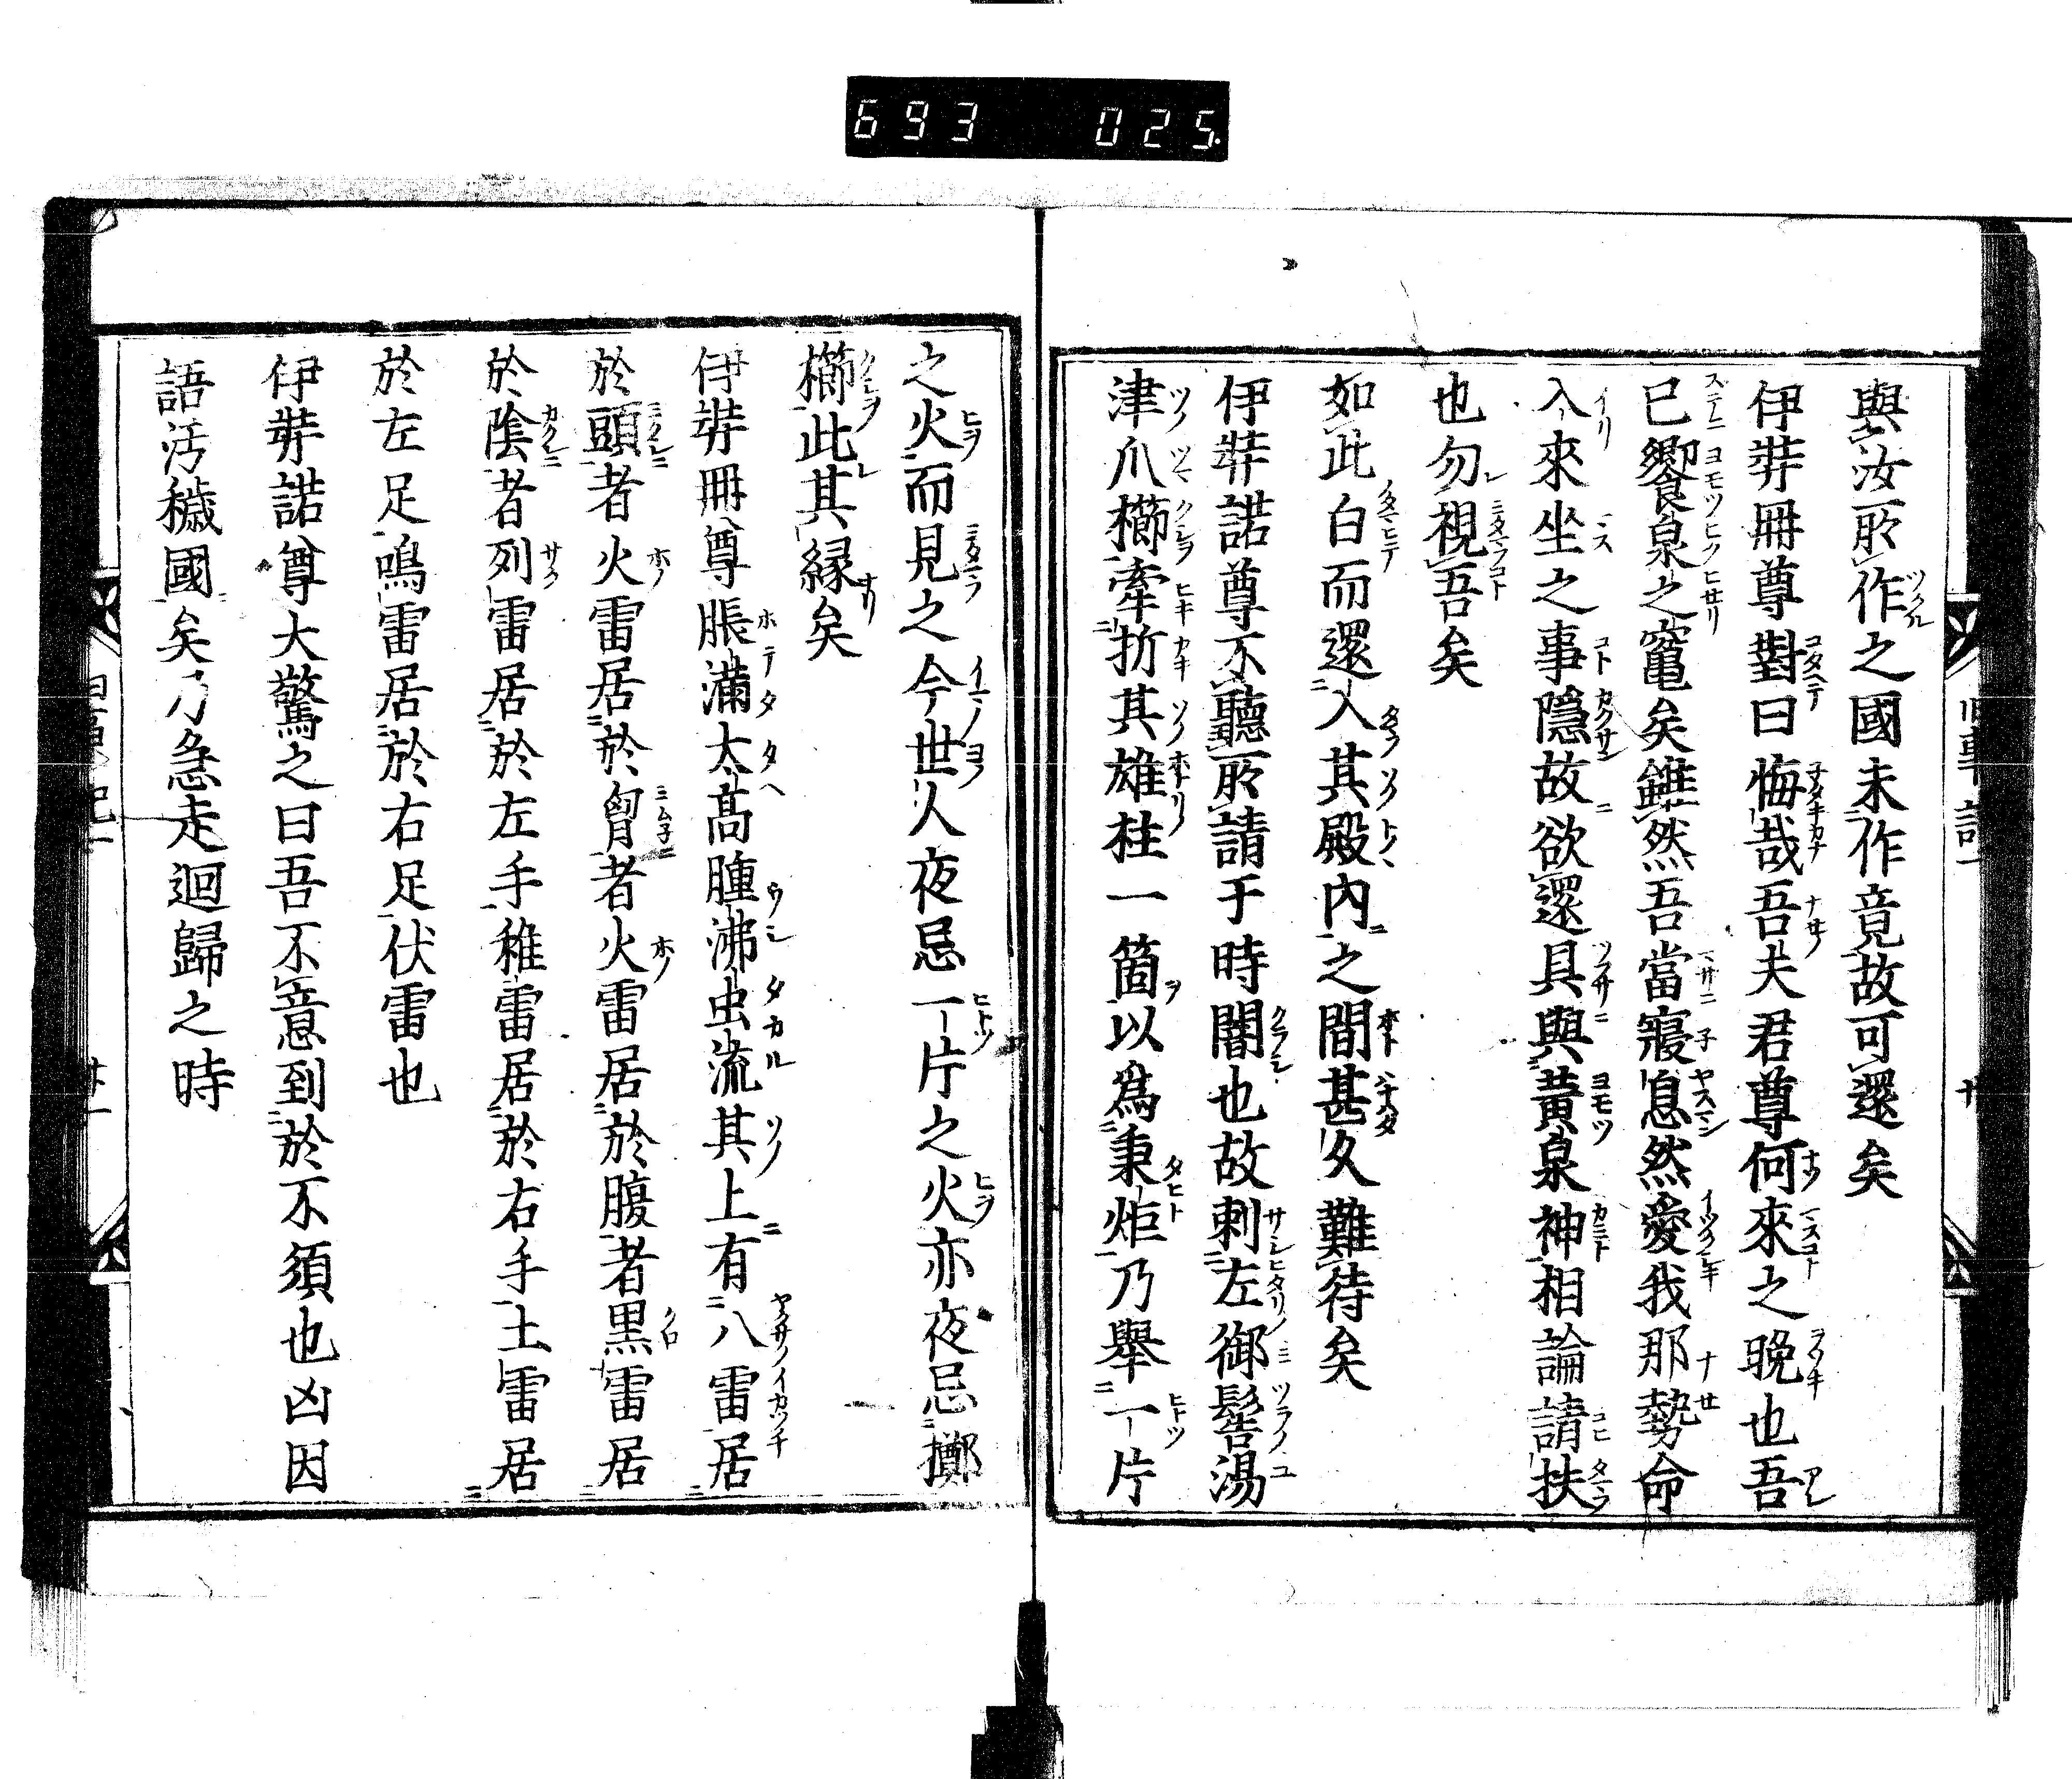 693 025.
與汝所作之國未作竟故可還矣
伊弉冊尊對曰悔哉吾夫君尊何來之晩也吾
已饗泉之竈矣雖然吾當寢息然愛我那勢命
入來坐之事隱故欲還具與黃泉神相論請扶
也勿視吾矣
如此白而還入其殿內之間甚久難待矣
伊弉諾尊不聽所請于時闇也故刺左御髻湯
津爪櫛牽折其雄柱一箇以爲秉炬乃擧一片
之火而見之今世人夜忌一片之火亦夜忌擲
櫛此其緣矣
伊弉冊尊脹滿太高膿沸虫流其上有八雷居
於頭者火雷居於胷者火雷居於腹者黒雷居
於陰者列雷居於左手稚雷居於右手土雷居
於左足鳴雷居於右足伏雷也
伊弉諾尊大驚之曰吾不意到於不須也凶因
語汚穢國矣乃急走迴歸之時